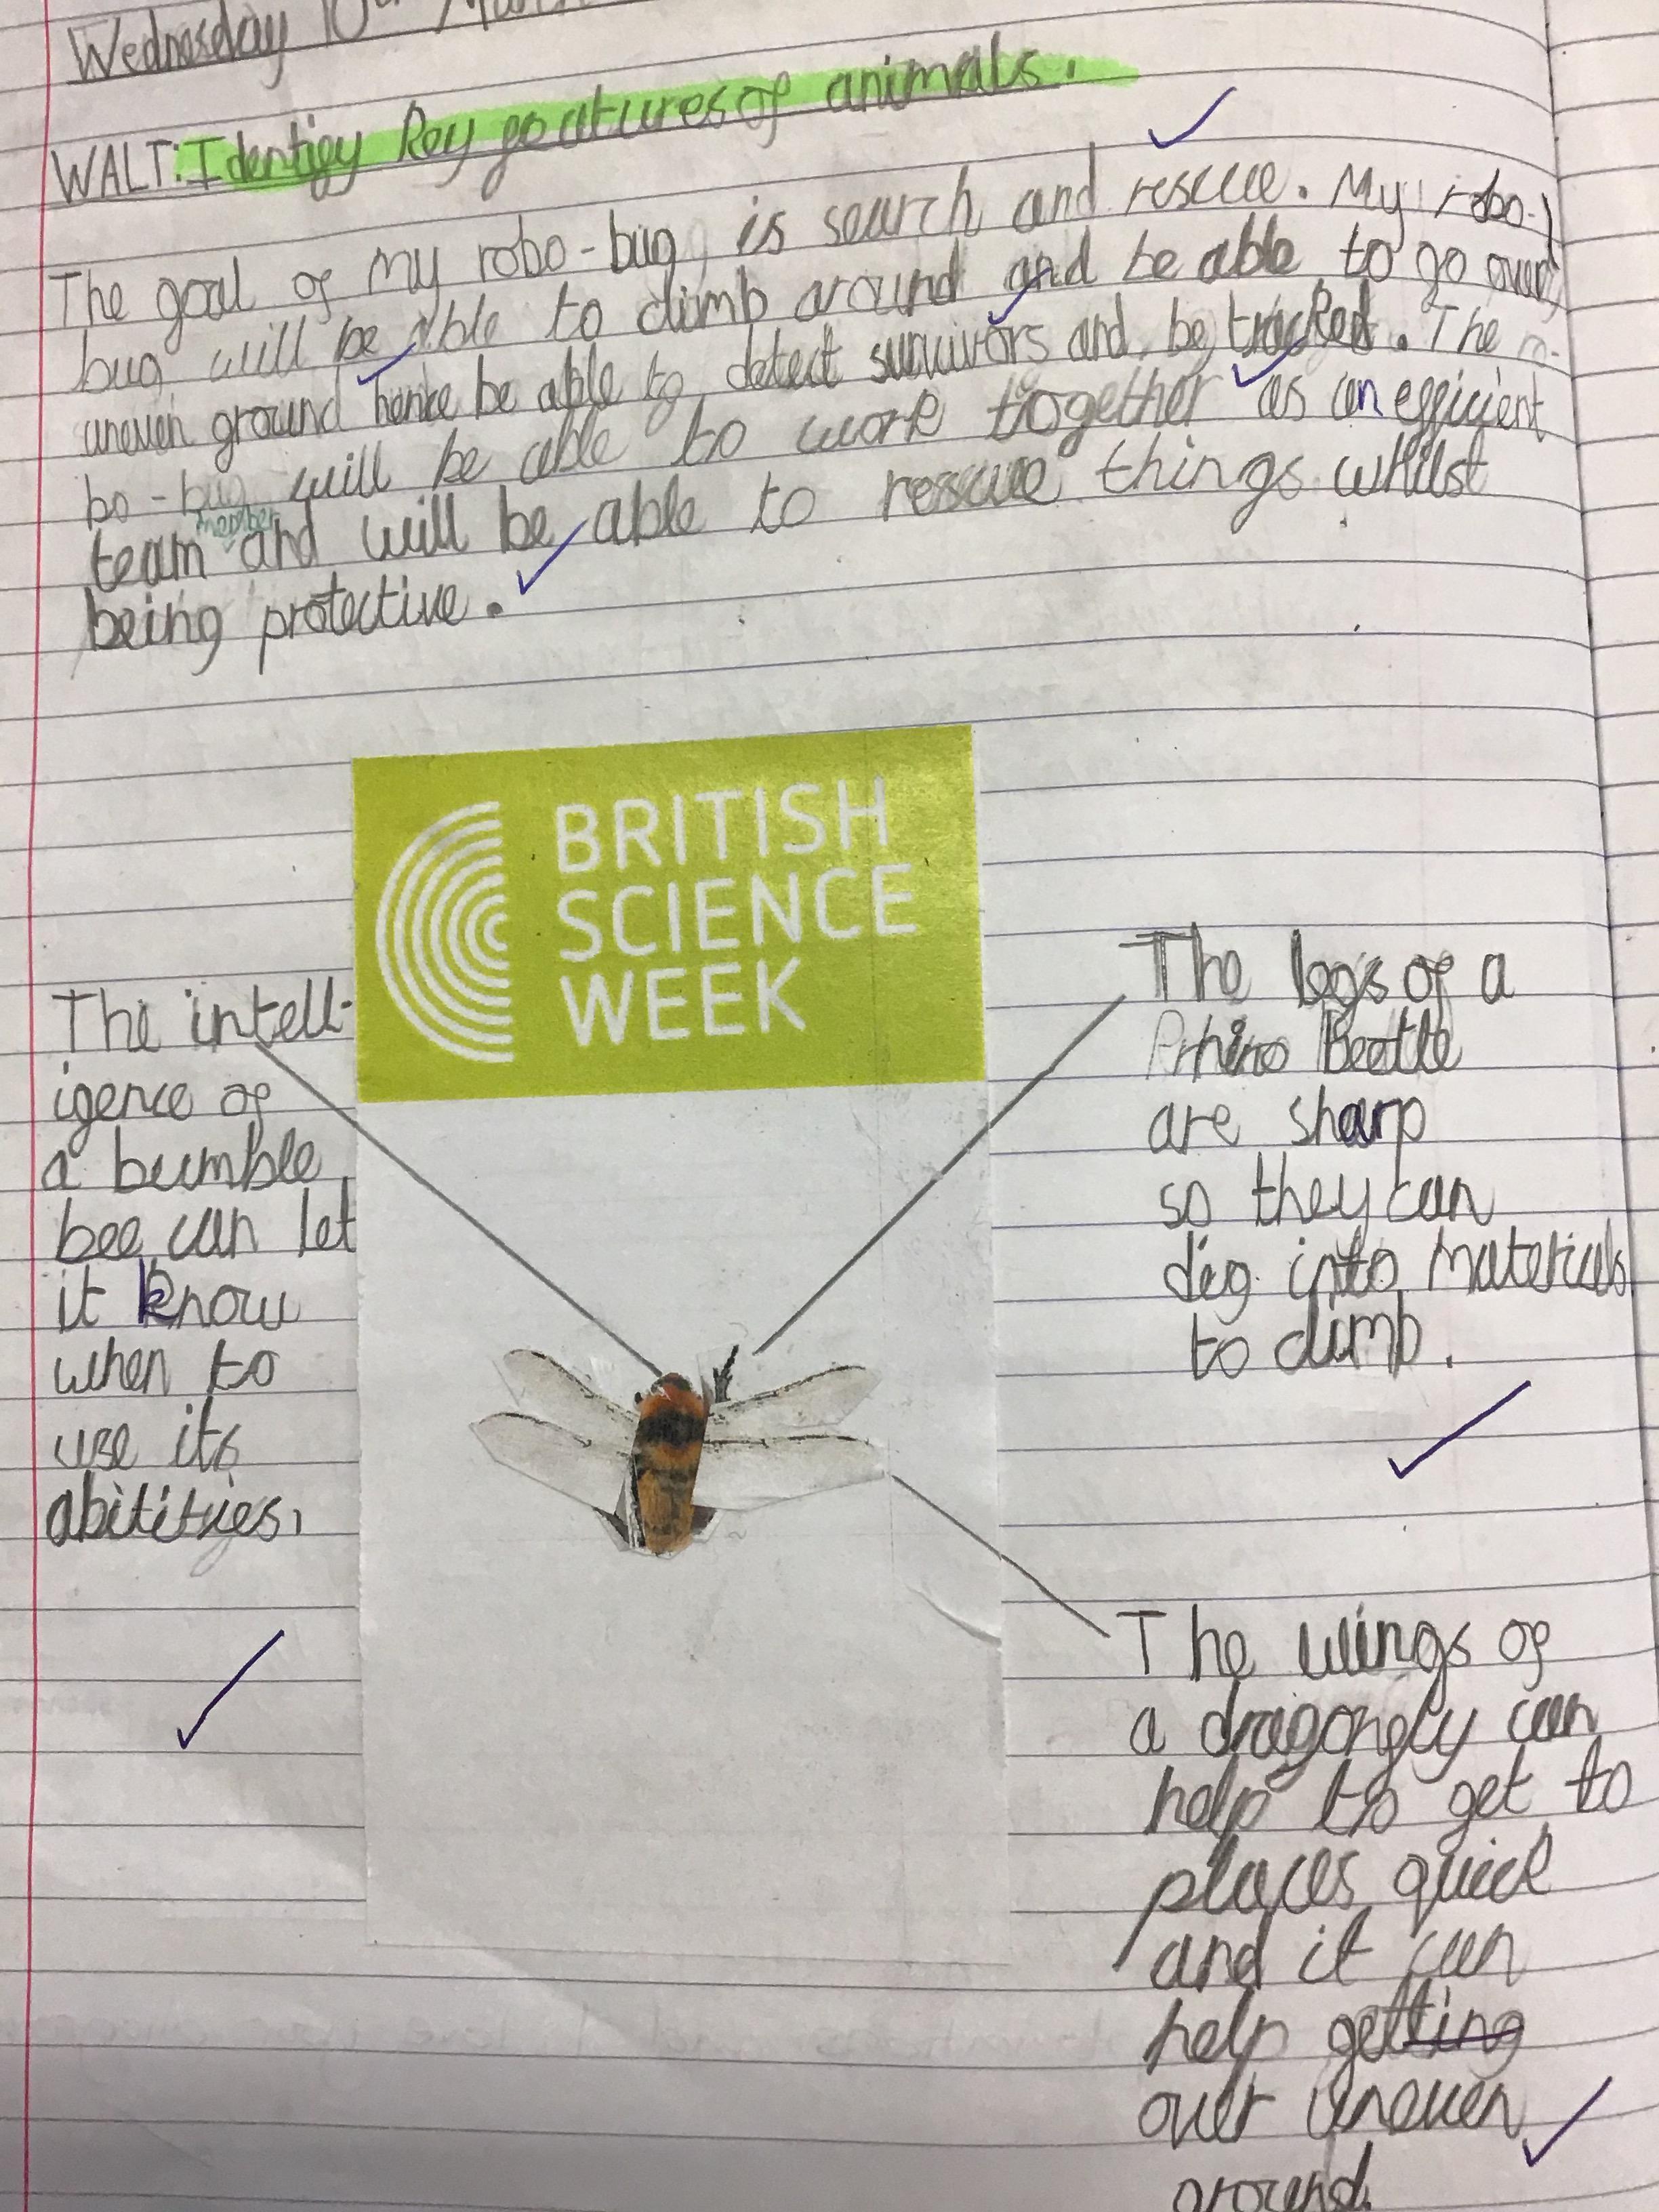 Wednesday 10th March
WALT: Identify key features of animals.
The goal of my robo-bug is search and rescue. My robo-
bug will be able to climb around and be able to go over
uneven ground hence be able to detect survivors and be tracked. The ro-
bo-bug will be able to work together as an efficient
team member and will be able to rescue things whilst
being protective.
BRITISH
SCIENCE
WEEK
The intell-
igence of
a bumble
bee can let
it know
when to
use its
abititries.
The legs of a
Rhino Beetle
are sharp
so they can
dig into materials
to climb.
The wings of
a dragonfly can
help to get to
places quick
and it can
help getting
over uneven
ground.